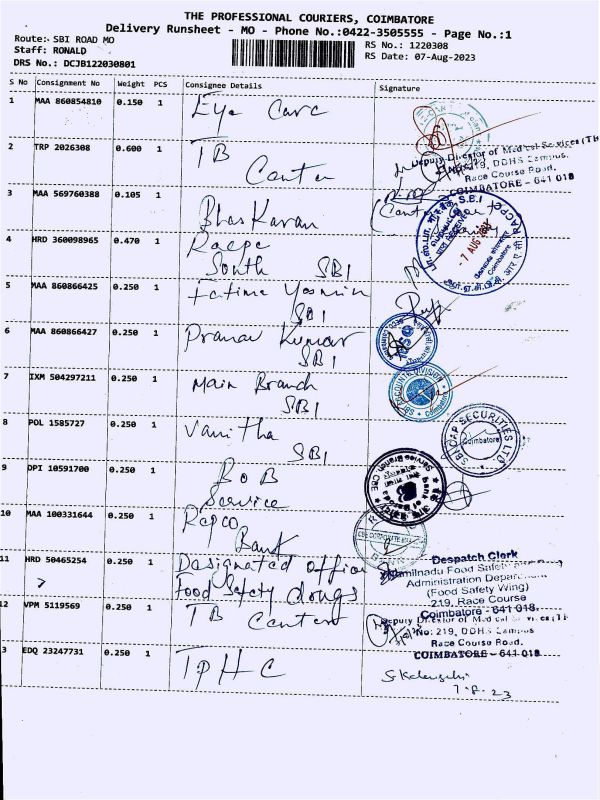 THE PROFESSIONAL COURIERS, COIMBATORE
Delivery Runsheet - MO - Phone No.:0422-3505555 - Page No.:1
Route: SBI ROAD MO
RS No.: 1220308
Staff: RONALD
RS Date: 07-Aug-2023
DRS No.: DCJB122030801
S No Consignment No Weight PCS Consignee Details Signature
1 MAA 860854810 0.150 1 Eye Care
2 TRP 2026308 0.600 1 TB
Center
Deputy Director of Medical Services (TB
No: 219, DDHS Campus,
Race Course Road,
COIMBATORE - 641 018
3 MAA 569760388 0.105 1 Bhaskaran
4 HRD 360098965 0.470 1 Racpc
South SBI
S.B.I
RACPC
7 AUG
Coimbatore
5 MAA 860866425 0.250 1 Fatima Yasmin
SBI
6 MAA 860866427 0.250 1 Pranav Kumar
SBI
7 IXM 504297211 0.250 1 Main Branch
SBI
ACCOUNTS DIVISION
8 POL 1585727 0.250 1 Vanitha
SBI
SBI CAP SECURITIES LTD
Coimbatore
9 DPI 10591700 0.250 1 BoB
Service
Service Branch, CBE
10 MAA 100331644 0.250 1 Repco
Bank
CBE CORPORATE
11 HRD 50465254 0.250 1 Designated officer
Food Safety drugs
Despatch Clerk
Tamilnadu Food Safety
Administration Department
(Food Safety Wing)
219, Race Course
Coimbatore - 641 018.
12 VPM 5119569 0.250 1 TB Center
Deputy Director of Medical Services (T
No: 219, DDHS Campus
Race Course Road,
COIMBATORE - 641 018
3 EDQ 23247731 0.250 1 IPHC
7.8.23